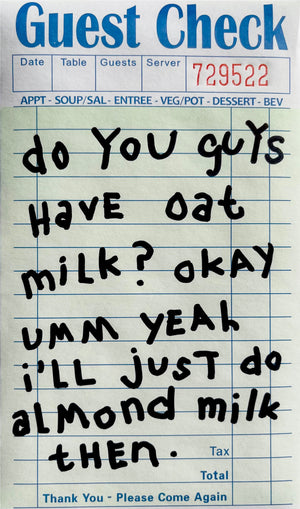 Guest Check
Date Table Guests Server 729522
APPT - SOUP/SAL - ENTREE - VEG/POT - DESSERT - BEV
do YOU guYs
HavE oat
milk? OKAY
UMM YEAh
i'LL jusT do
aLMond milk
tHEn.
Tax
Total
Thank You - Please Come Again